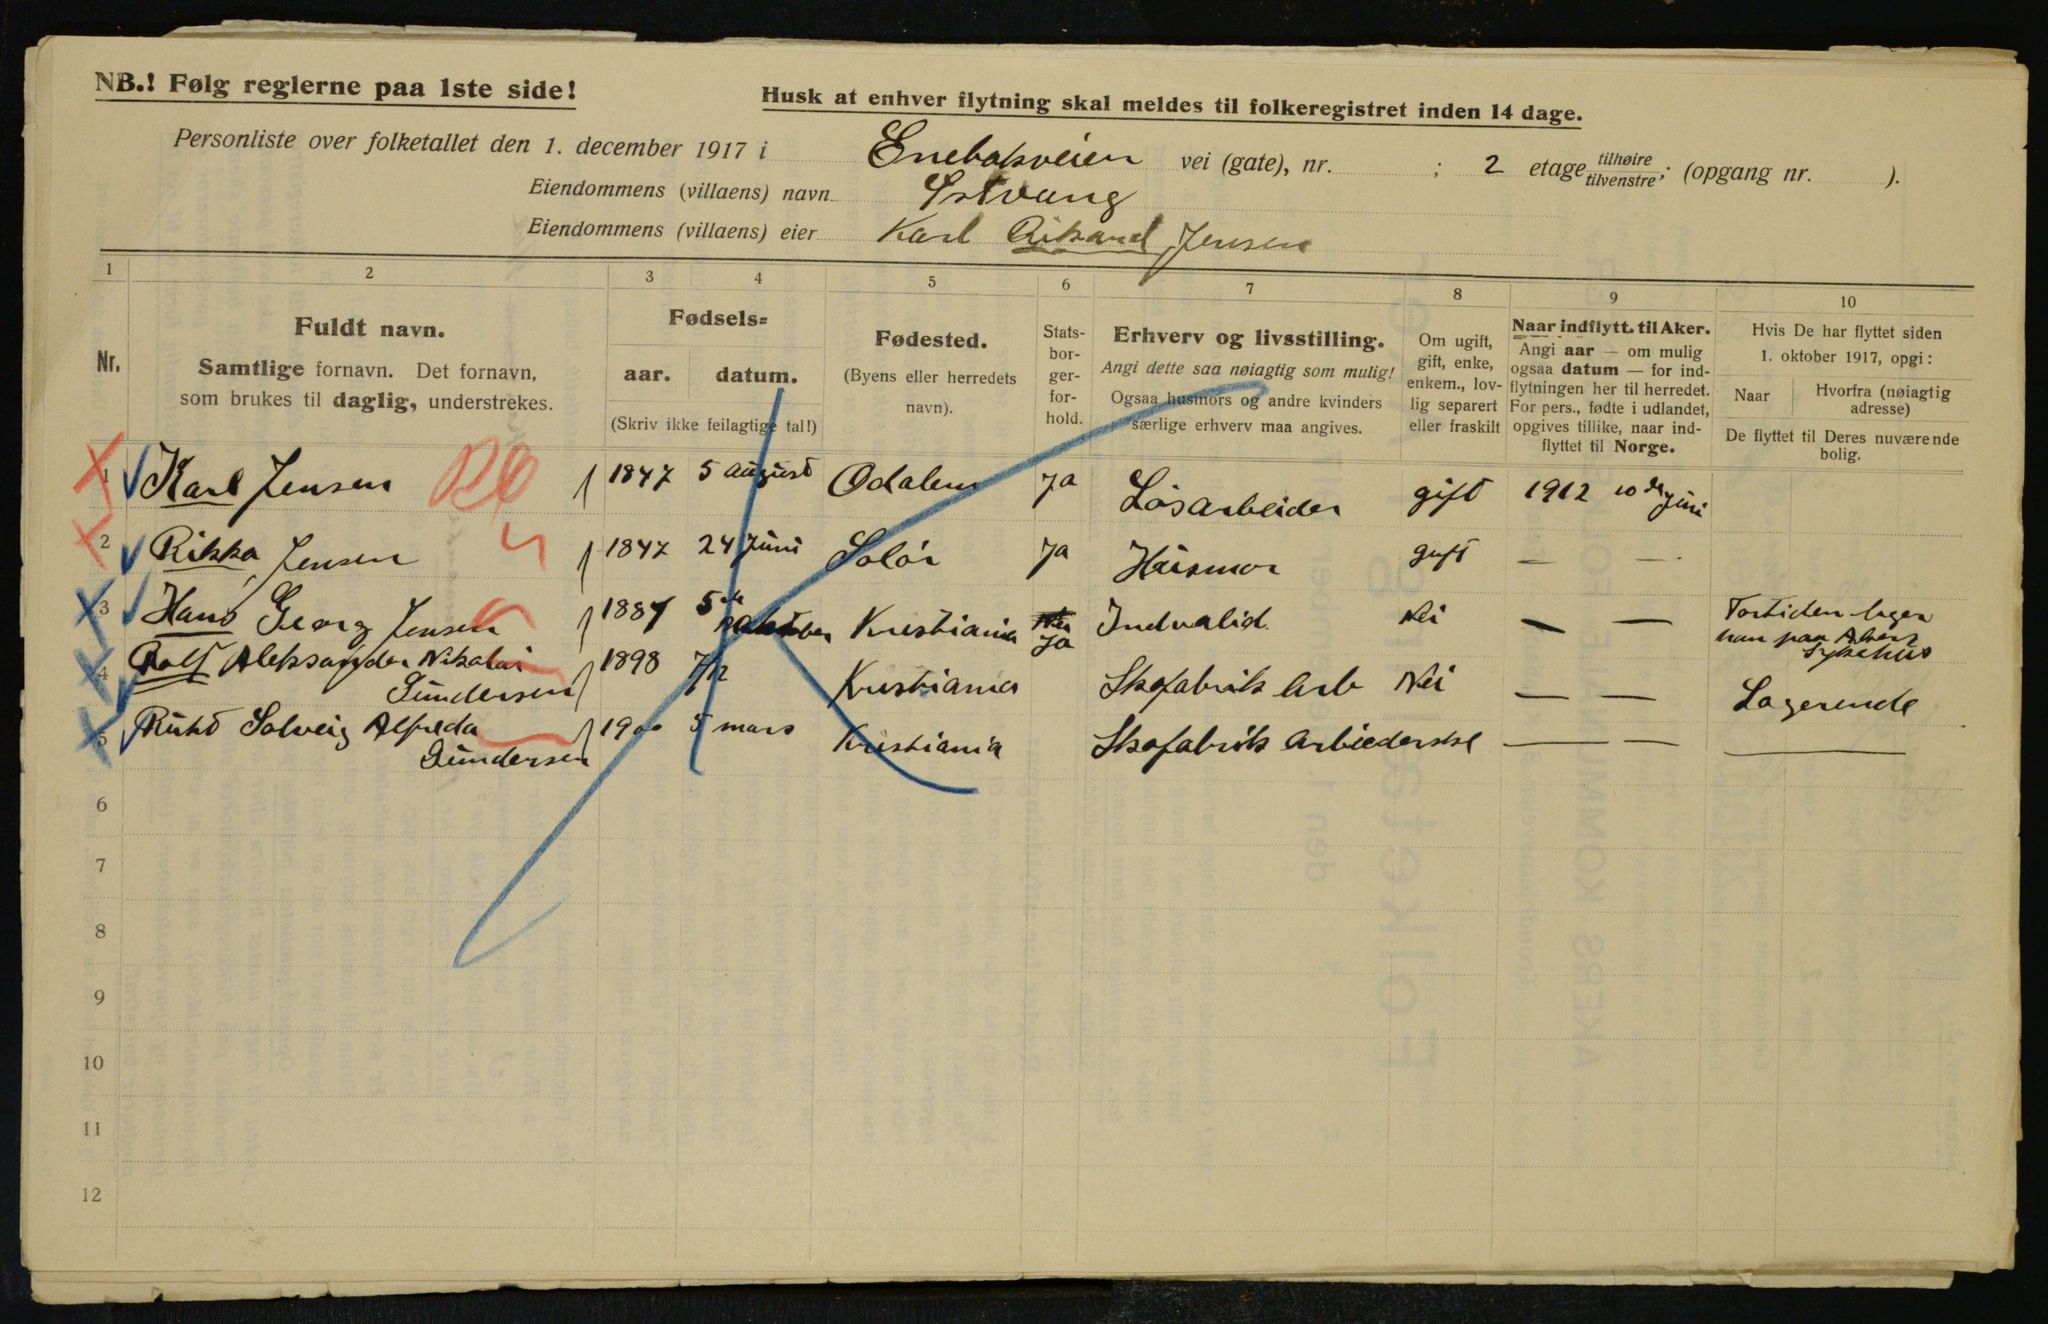 NB.! Følg reglerne paa 1ste side!
Husk at enhver flytning skal meldes til folkeregistret inden 14 dage.
Personliste over folketallet den 1. december 1917 i Enebakveien vei (gate), nr. ; 2 etage tilhøire tilvenstre; (opgang nr. ).
Eiendommens (villaens) navn Østvang
Eiendommens (villaens) eier Karl Rikard Jensen
1 2 3 4 5 6 7 8 9 10
Nr.
Fuldt navn.
Samtlige fornavn. Det fornavn,
som brukes til daglig, understrekes.
Fødsels=
aar. datum.
(Skriv ikke feilagtige tal!)
Fødested.
(Byens eller herredets
navn).
Stats-
bor-
ger-
for-
hold.
Erhverv og livsstilling.
Angi dette saa nøiagtig som mulig!
Ogsaa husmors og andre kvinders
særlige erhverv maa angives.
Om ugift,
gift, enke,
enkem., lov-
lig separert
eller fraskilt
Naar indflytt. til Aker.
Angi aar — om mulig
ogsaa datum — for ind-
flytningen her til herredet.
For pers., fødte i udlandet,
opgives tillike, naar ind-
flyttet til Norge.
Hvis De har flyttet siden
1. oktober 1917, opgi:
Naar Hvorfra (nøiagtig
adresse)
De flyttet til Deres nuværende
bolig.
1 Karl Jensen 1847 5 august Odalen Ja Løsarbeider gift 1912 10 de Juni
2 Rikka Jensen 1847 24 Juni Solør Ja Husmor gift — —
3 Hans Georg Jensen 1887 5 te oktober Kristiania Nei Ja Indvalid Nei — — Fortiden liger
han paa Akers
Sykehus
4 Rolf Aleksander Nikolai
Gundersen 1898 7/12 Kristiania Skofabrik Arb Nei — — Logerende
5 Ruht Solveig Alfreda
Gundersen 1900 5 mars Kristiania Skofabrik Arbiederske — — —
6
7
8
9
10
11
12